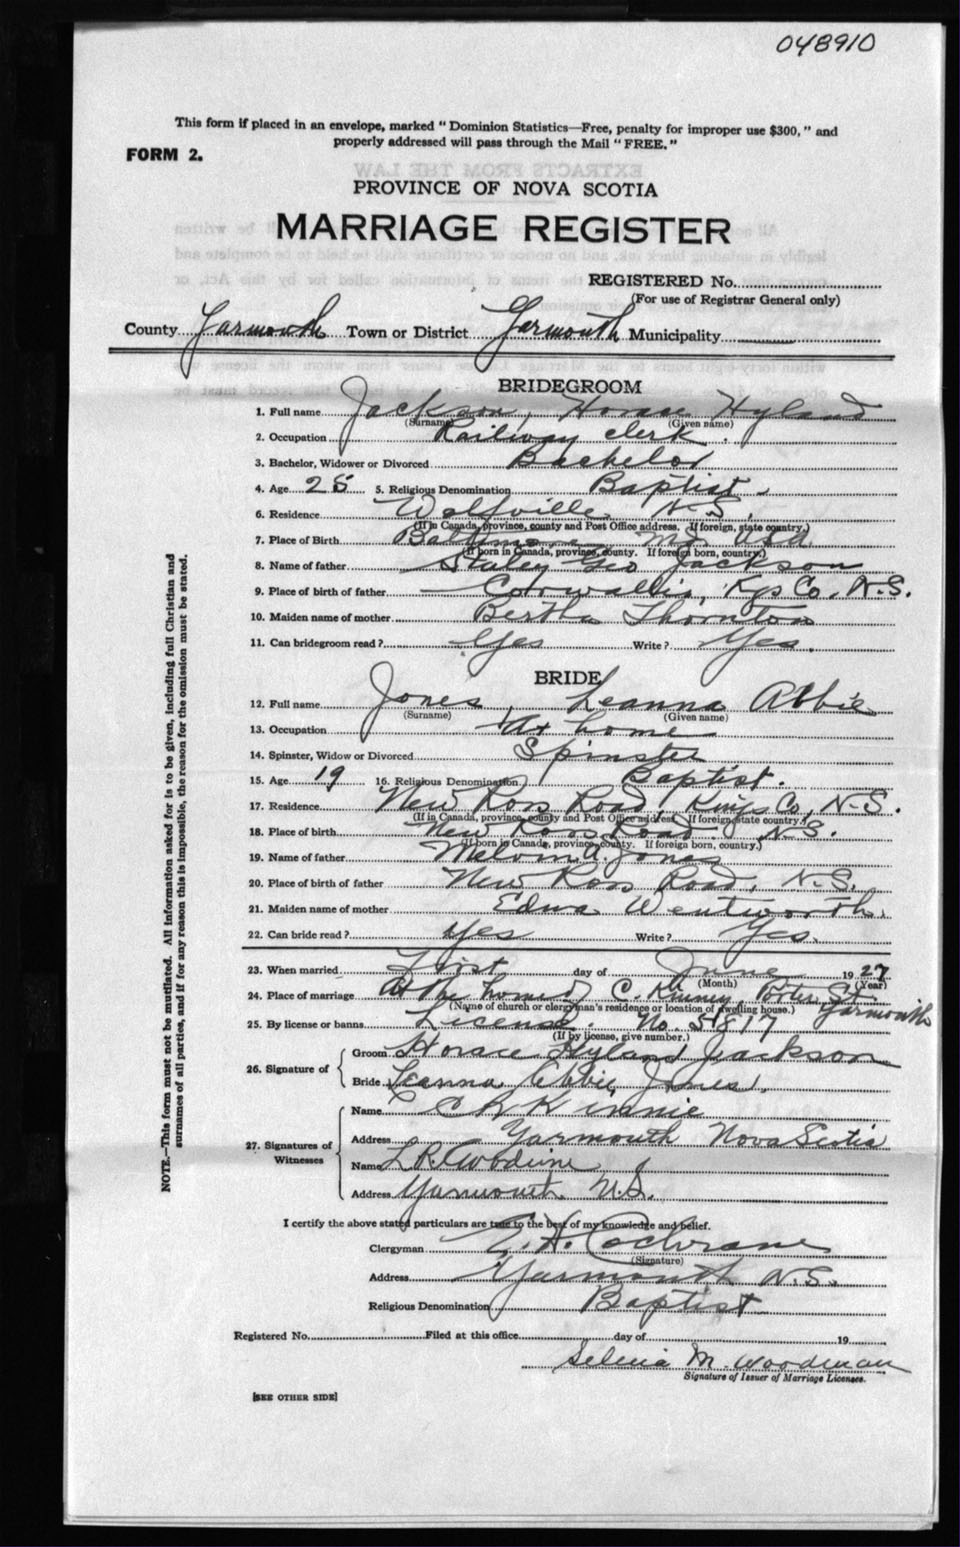 048910
This form if placed in an envelope, marked "Dominion Statistics—Free, penalty for improper use $300," and
properly addressed will pass through the Mail "FREE."
FORM 2.
PROVINCE OF NOVA SCOTIA
MARRIAGE REGISTER
REGISTERED No.
(For use of Registrar General only)
County Yarmouth Town or District Yarmouth Municipality
BRIDEGROOM
1. Full name Jackson, Horace Hyland
(Surname) (Given name)
2. Occupation Railway clerk.
3. Bachelor, Widower or Divorced Bachelor
4. Age 25 5. Religious Denomination Baptist.
6. Residence Wolfville N.S.
(If in Canada, province, county and Post Office address. If foreign, state country.)
7. Place of Birth Baltimore Md. USA
(If born in Canada, province, county. If foreign born, country.)
8. Name of father Staley Geo Jackson
9. Place of birth of father Cornwallis, Kgs Co. N.S.
10. Maiden name of mother Bertha Thornton
11. Can bridegroom read? Yes Write? Yes.
BRIDE
12. Full name Jones Leanna Abbie
(Surname) (Given name)
13. Occupation At home
14. Spinster, Widow or Divorced Spinster
15. Age 19 16. Religious Denomination Baptist.
17. Residence New Ross Road, Kings Co, N-S.
(If in Canada, province, county and Post Office address. If foreign state country.)
18. Place of birth New Ross Road. N.S.
(If born in Canada, province, county. If foreign born, country.)
19. Name of father Melvin A. Jones
20. Place of birth of father New Ross Road, N-S.
21. Maiden name of mother Edna Wentworth.
22. Can bride read? Yes Write? Yes.
23. When married First day of June 1927
(Month) (Year)
24. Place of marriage At the home of C. Kinney, Porter St. Yarmouth
(Name of church or clergyman's residence or location of dwelling house.)
25. By license or banns License. No. 51817
(If by license, give number.)
26. Signature of
Groom Horace Hyland Jackson
Bride Leanna Abbie Jones.
27. Signatures of Witnesses
Name C R Kinnie
Address Yarmouth Nova Scotia
Name L R
Address Yarmouth N.S.
I certify the above stated particulars are true to the best of my knowledge and belief.
Clergyman H. Cochrane
(Signature)
Address Yarmouth N.S.
Religious Denomination Baptist
Registered No. Filed at this office day of 19
Selena M. Woodman
Signature of Issuer of Marriage Licenses.
[SEE OTHER SIDE]
NOTE.—This form must not be mutilated. All information asked for is to be given, including full Christian and
surnames of all parties, and if for any reason this is impossible, the reason for the omission must be stated.